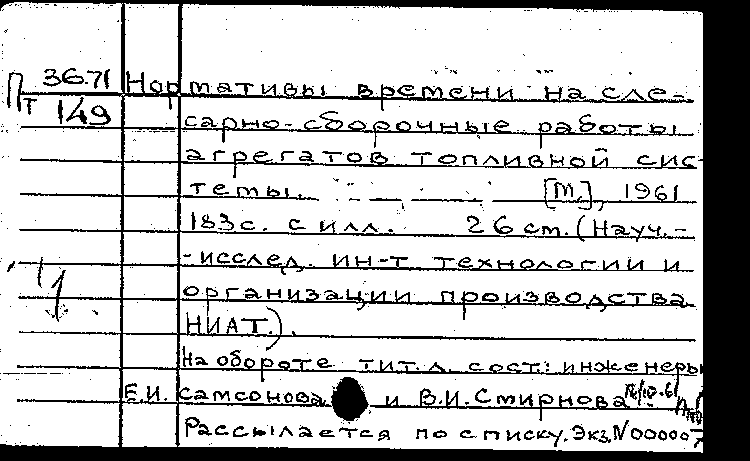 Пт 36.71
149
Нормативы времени на сле-
сарно-сборочные работы
агрегатов топливной сис-
темы. [М.], 1961
183 с. с илл. 26 см. (Науч.-
-исслед. ин-т технологии и
организации производства
НИАТ.).
На обороте тит. л. сост: инженеры
Е.И. Самсонова и В.И. Смирнова
Рассылается по списку. Экз. N 000007